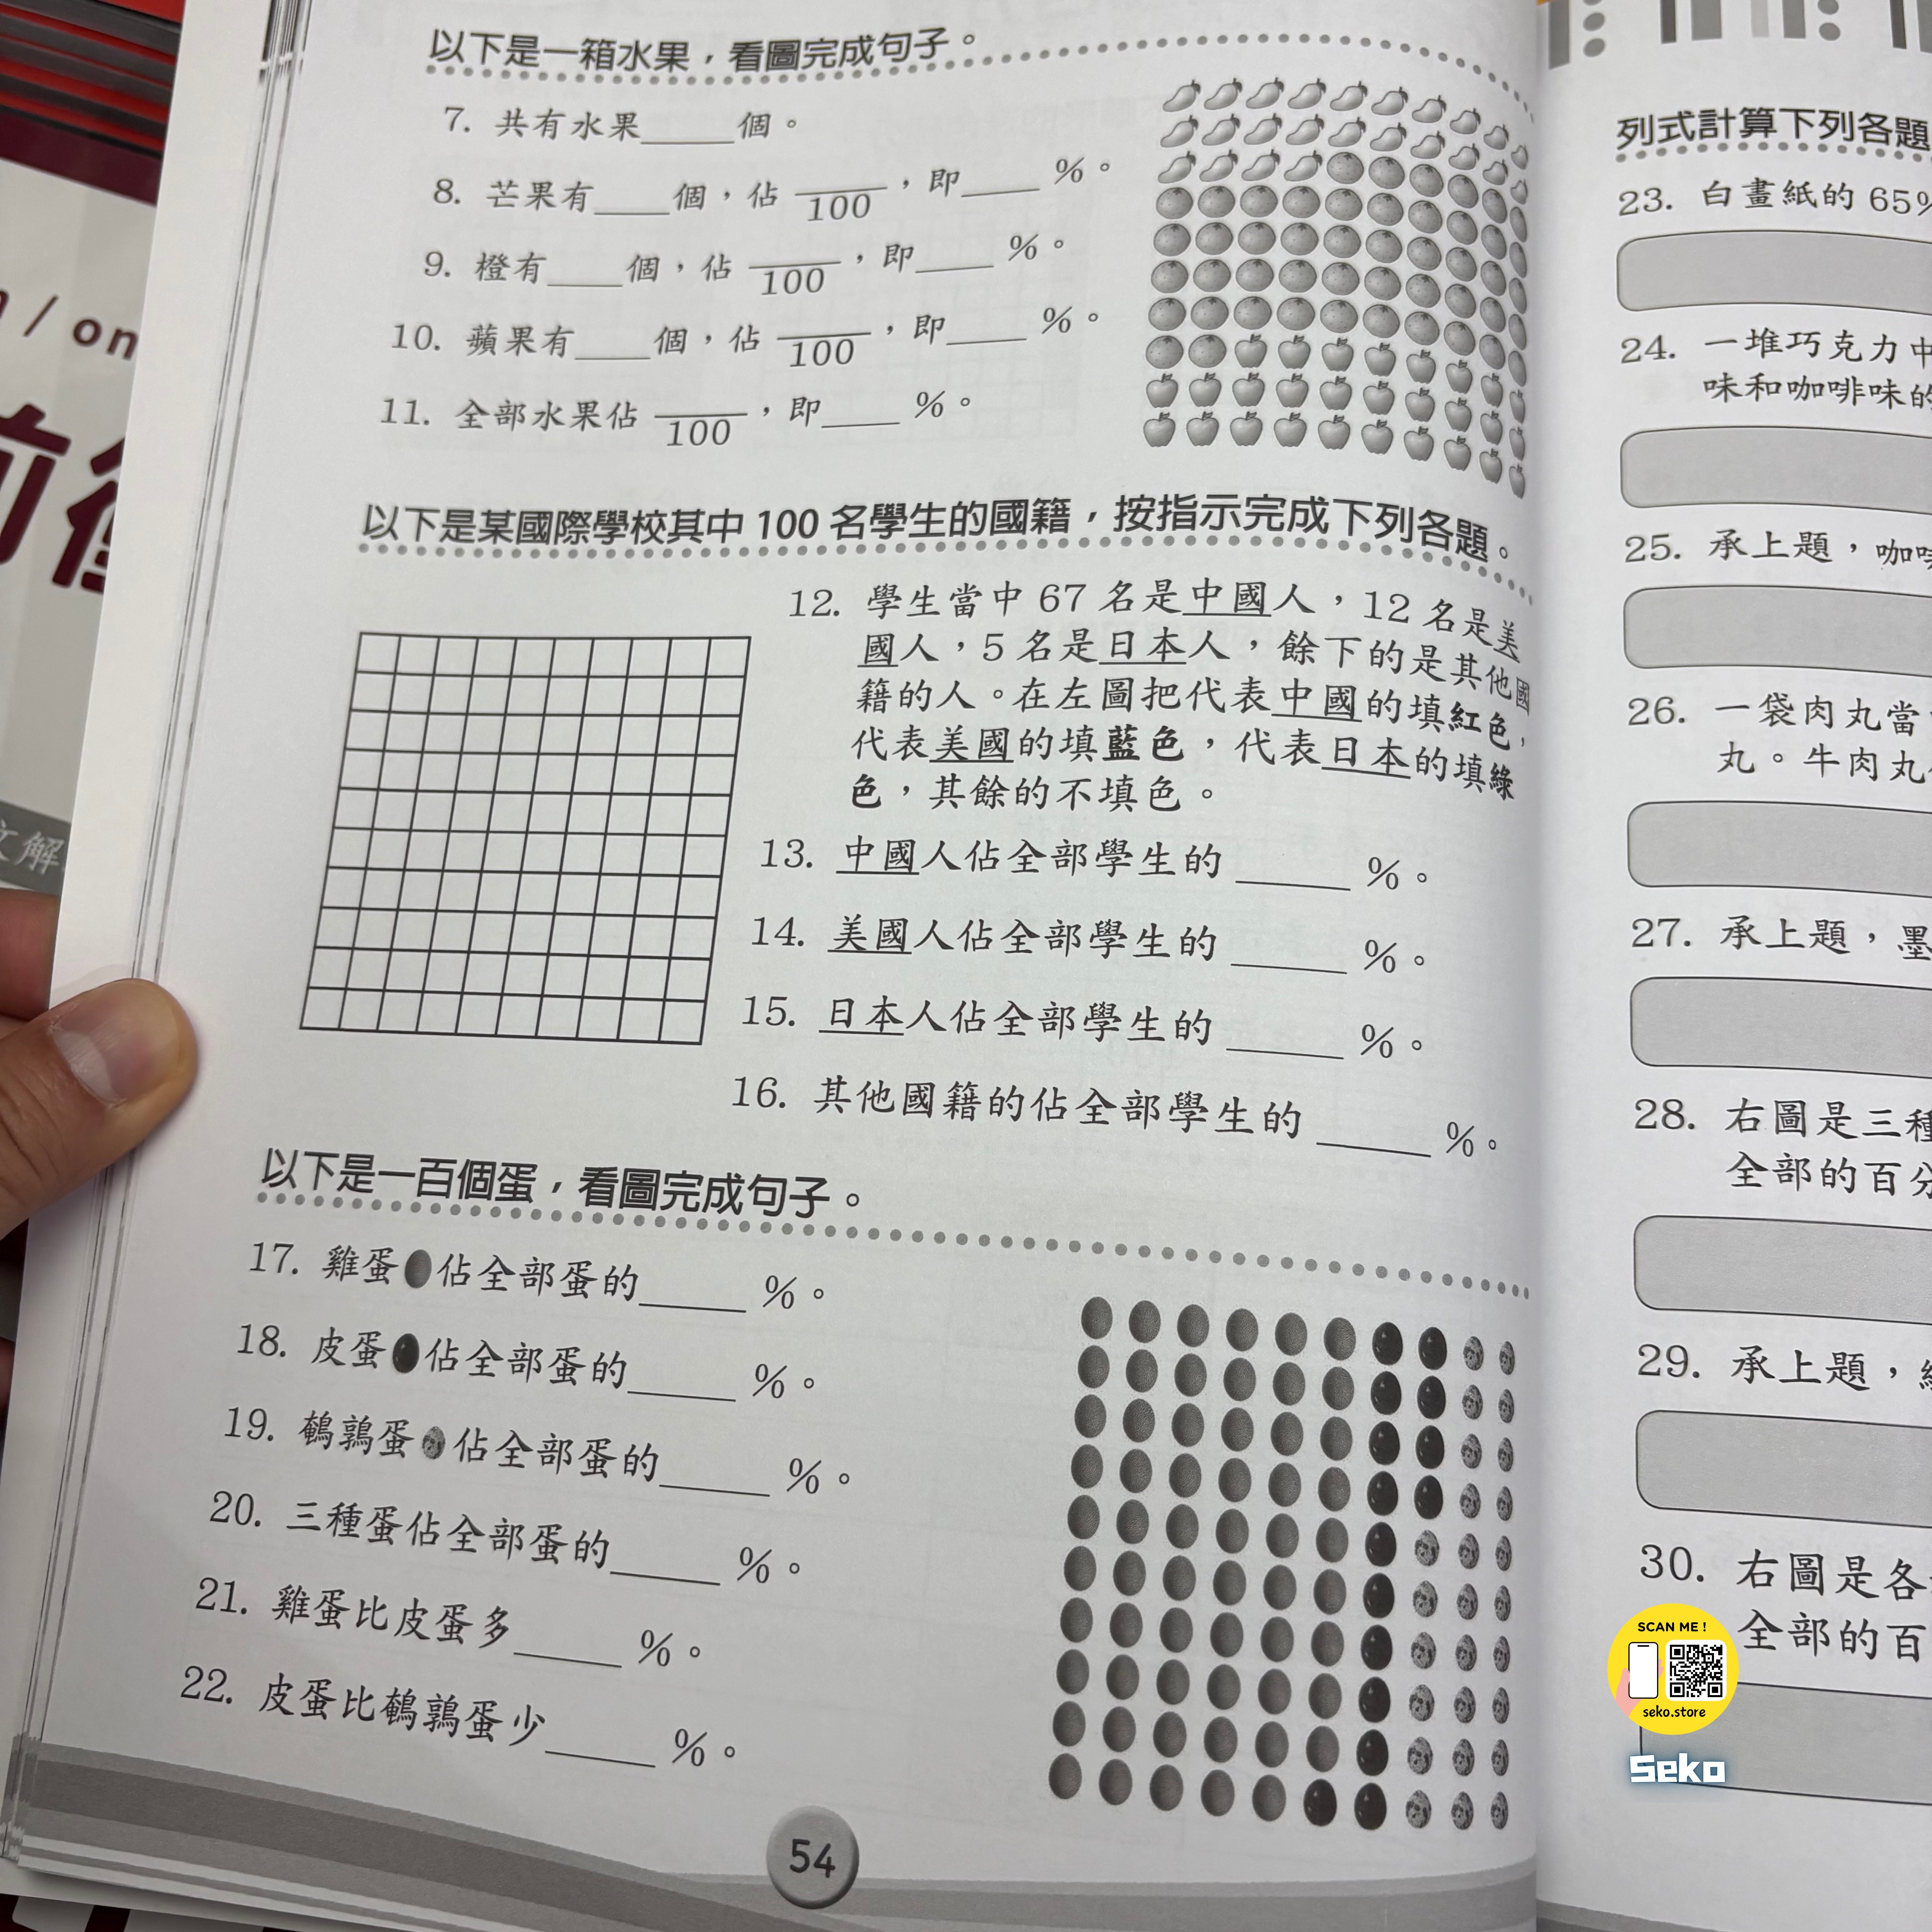 以下是一箱水果，看圖完成句子。
7. 共有水果____個。
8. 芒果有____個，佔 ____/100，即____ %。
9. 橙有____個，佔 ____/100，即____ %。
10. 蘋果有____個，佔 ____/100，即____ %。
11. 全部水果佔 ____/100，即____ %。
以下是某國際學校其中 100 名學生的國籍，按指示完成下列各題。
12. 學生當中 67 名是中國人，12 名是美
國人，5 名是日本人，餘下的是其他國
籍的人。在左圖把代表中國的填紅色，
代表美國的填藍色，代表日本的填綠
色，其餘的不填色。
13. 中國人佔全部學生的 ____ %。
14. 美國人佔全部學生的 ____ %。
15. 日本人佔全部學生的 ____ %。
16. 其他國籍的佔全部學生的 ____ %。
以下是一百個蛋，看圖完成句子。
17. 雞蛋佔全部蛋的____ %。
18. 皮蛋佔全部蛋的____ %。
19. 鵪鶉蛋佔全部蛋的____ %。
20. 三種蛋佔全部蛋的____ %。
21. 雞蛋比皮蛋多____ %。
22. 皮蛋比鵪鶉蛋少____ %。
54
列式計算下列各題
23. 白畫紙的 65%
24. 一堆巧克力中
味和咖啡味的
25. 承上題，咖啡
26. 一袋肉丸當
丸。牛肉丸
27. 承上題，墨
28. 右圖是三種
全部的百分
29. 承上題，
30. 右圖是各
全部的百
/ on
文解
SCAN ME !
seko.store
Seko